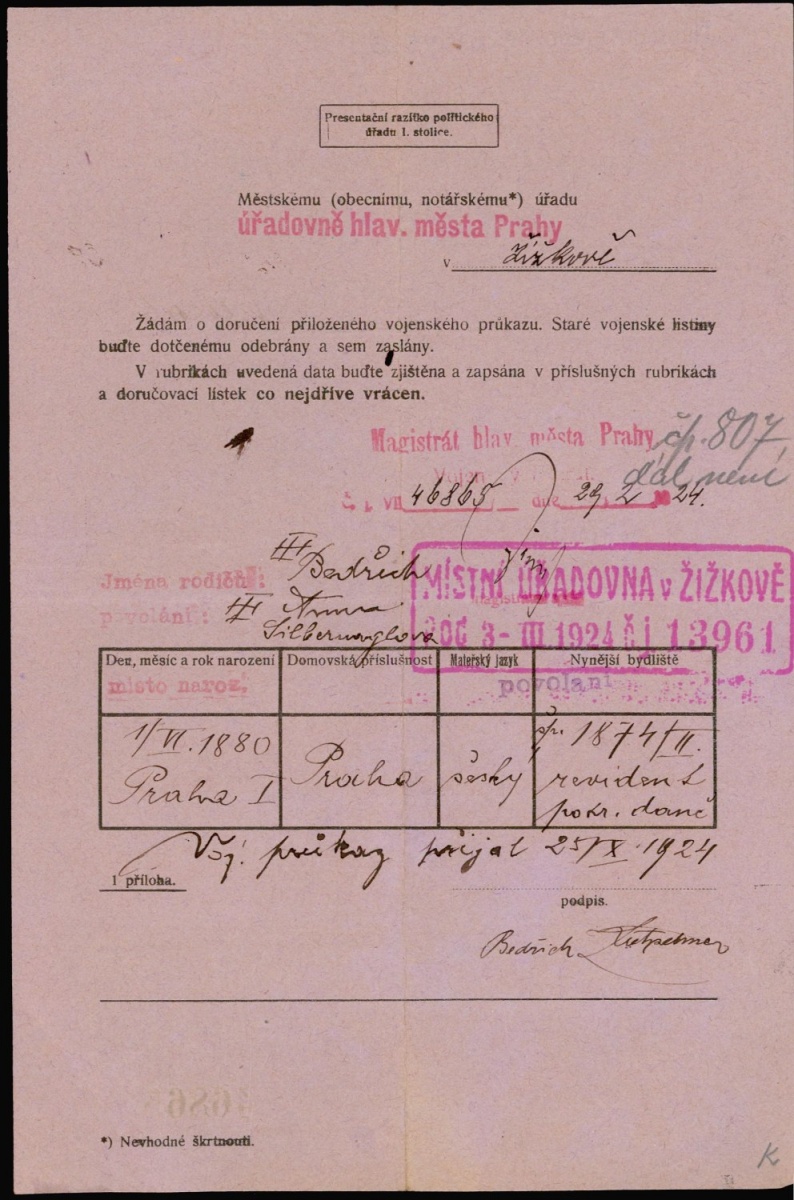 Presentační razítko politického
úřadu I. stolice.
Městskému (obecnímu, notářskému*) úřadu
úřadovně hlav. města Prahy
v Žižkově
Žádám o doručení přiloženého vojenského průkazu. Staré vojenské listiny
buďte dotčenému odebrány a sem zaslány.
V rubrikách uvedená data buďte zjištěna a zapsána v příslušných rubrikách
a doručovací lístek co nejdříve vrácen.
Magistrát hlav. města Prahy
čp. 807
dál není
č. j. VII 46865 dne 29 2 1924.
Jména rodičů: Bedřich
povolání: Anna
Silbernaglova
MÍSTNÍ ÚŘADOVNA v ŽIŽKOVĚ
DOŠ 3 - III. 1924 čj 13961
Den, měsíc a rok narození Domovská příslušnost Mateřský jazyk Nynější bydliště
místo naroz. povolání
1/VI. 1880 Praha česky čp. 1874/II.
Praha I revident
potr. daně
Voj. průkaz přijal 25/X. 1924
1 příloha.
podpis.
Bedřich
*) Nevhodné škrtnouti.
K